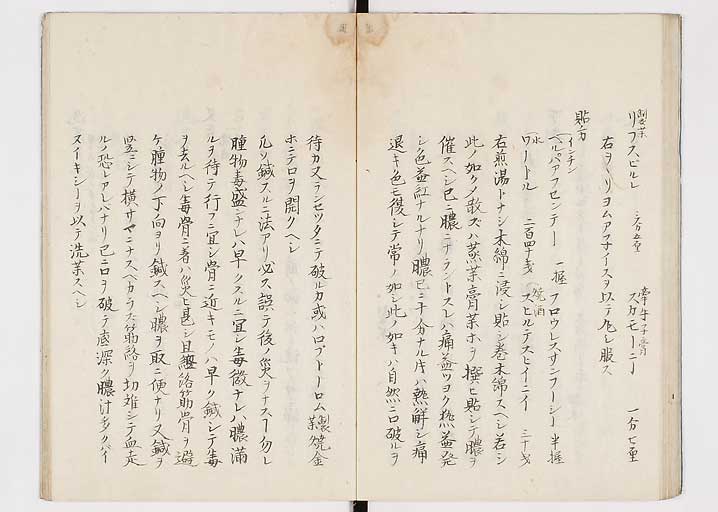 製薬
リフスピルレ 三分五重 牽牛子膏 スカモーニー 一分七重
右ヲーリヨムアフアイスヲ以テ丸レ服ス
貼方
ヘルバアフセンテー 一握 フロウレスサンフーシー 半握
水 ワートル 二百四十戔 焼酒 スピルテスヒイニイ 三十戔
右煎湯トナシ木綿ニ浸シ貼シ巻木綿スヘシ若シ
此ノ如クメ散ズハ蒸薬膏薬ホヲ撰ヒ貼シテ膿ヲ
催スヘシ已ニ膿ニナラントスレハ痛益ツヨク熱益発
シ色益紅ナルナリ膿已ニ十分ナル片ハ熱解シ痛
退キ色モ復シテ常ノ如シ此ノ如キハ自然ニ口破ルヲ
待カ又ランセツタニテ破ルカ或ハロプトーロム製薬焼金
ホニテ口ヲ開クヘシ
凡ソ鍼スルニ法アリ必ス誤テ後ノ災ヲナスフ勿レ
腫物毒盛ニナレハ早クスルニ宜シ毒微ナレハ膿満
ルヲ待テ行フニ宜シ骨ニ近キモノハ早ク鍼シテ毒
ヲ去ルヘシ毒骨ニ著ハ災ヒ甚シ且経絡筋骨ヲ避
ケ腫物ノ下向ヨリ鍼スヘシ膿ヲ取ニ便ナリ又鍼ヲ
竪ニシテ横サマニナスヘカラス筋絡ヲ切難シテ血走
ルノ恐レアレハナリ已ニ口ヲ破テ底深ク膿汁多クバイ
ヌイキシーヲ以テ洗薬スヘシ